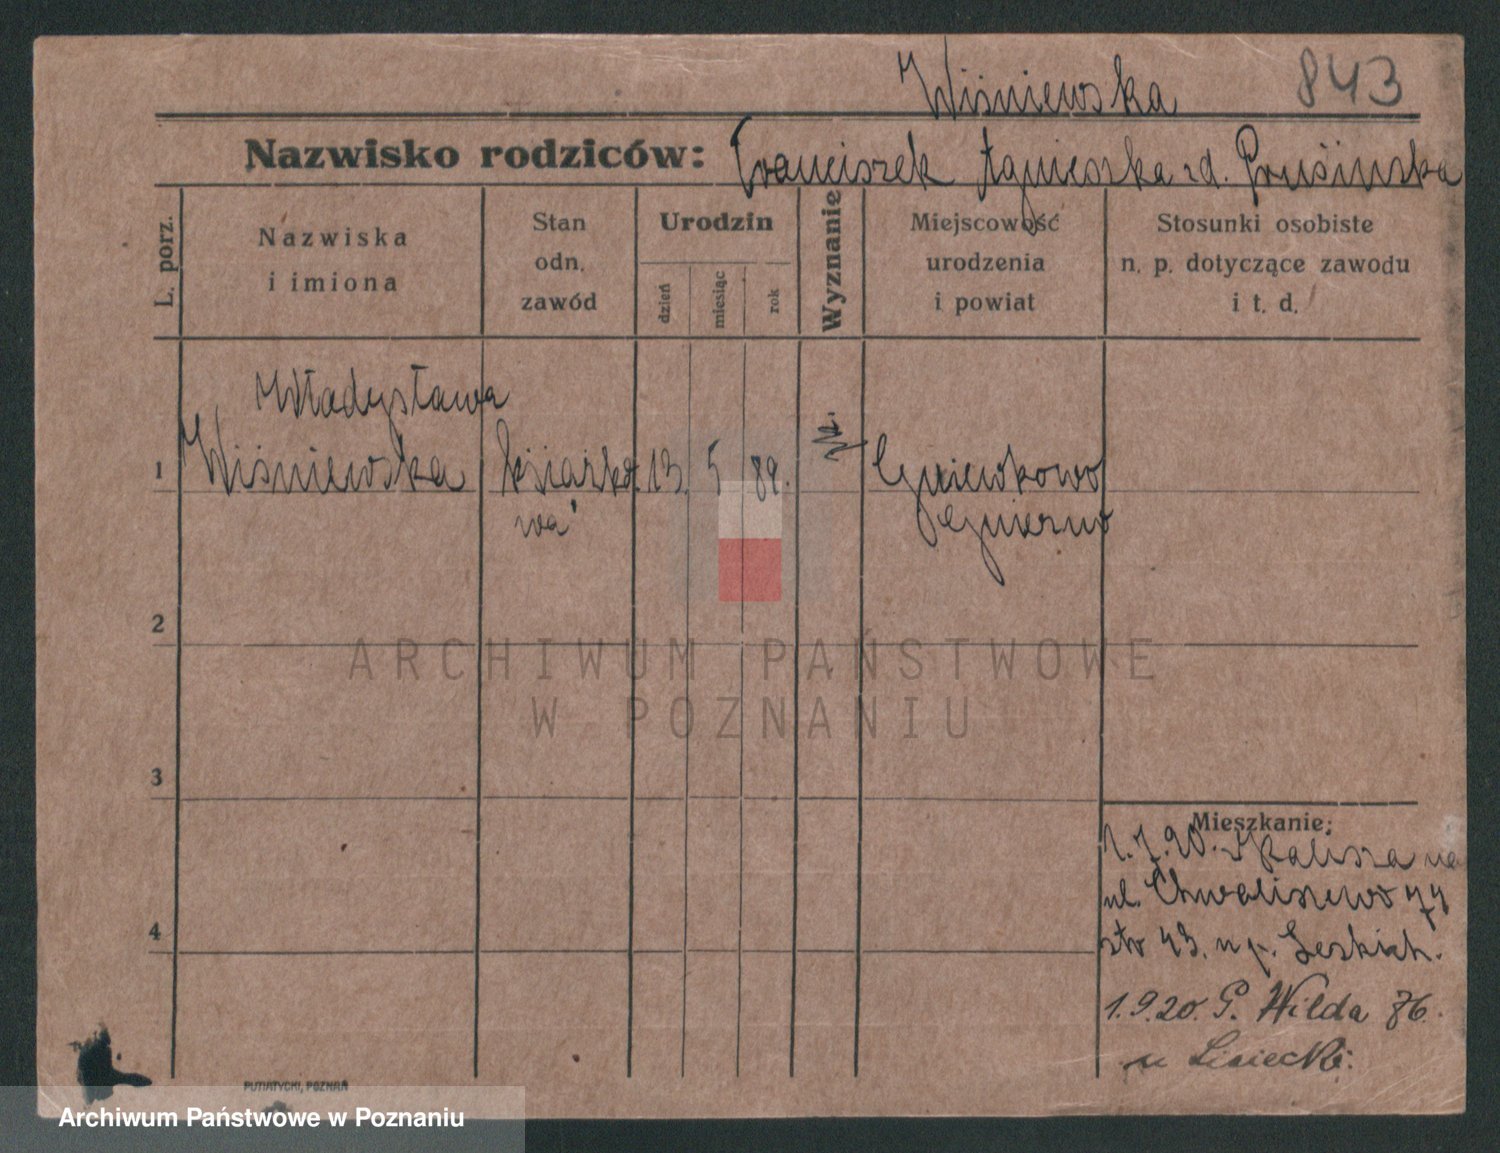 Wiśniewska 843
Nazwisko rodziców: Franciszek Agnieszka zd. Prusińska
L. porz.
Nazwiska
i imiona
Stan
odn.
zawód
Urodzin
dzień
miesiąc
rok
Wyznanie
Miejscowość
urodzenia
i powiat
Stosunki osobiste
n. p. dotyczące zawodu
i t. d.
Władysława
1 Wiśniewska książko 13. 5 89. Gniewkowo
wa
2
3
4
ARCHIWUM PAŃSTWOWE
W POZNANIU
Mieszkanie:
1.7.20. z Kalisza na
ul. Chwaliszewo 74
43. u p. Leskich.
1.9.20. G. Wilda 76.
u Lisiecki.
PUTIATYCKI, POZNAŃ
Archiwum Państwowe w Poznaniu